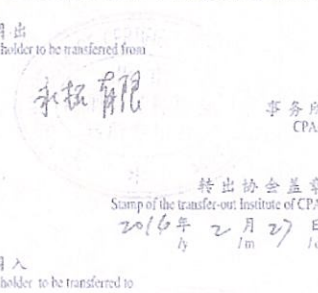 出
holder to be transferred from
永拓 有限
事务所
CPA
转出协会盖章
Stamp of the transfer-out Institute of CPA
2014年 2月 27日
/y /m /d
入
holder to be transferred to